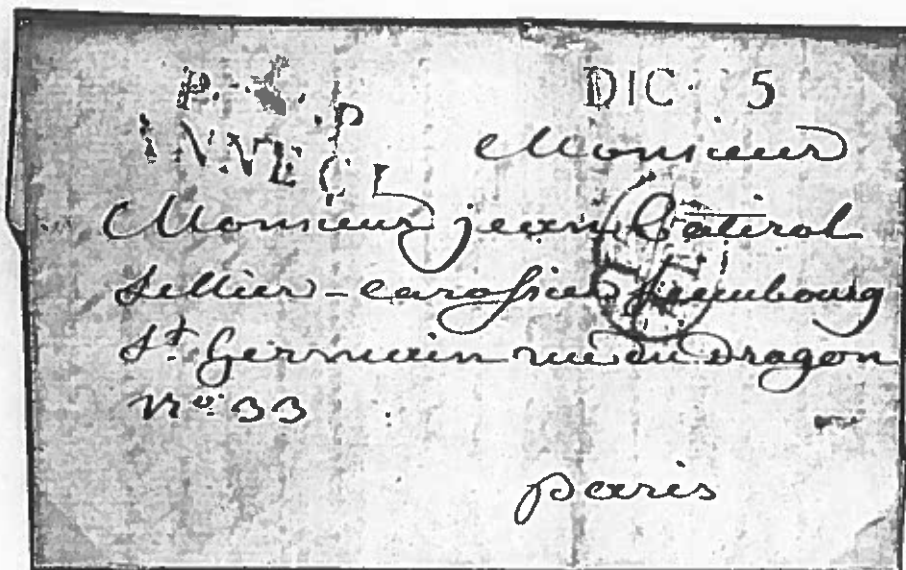 P. P.
DIC 5
Monsieur
Monsieur jean
Sellier - carossier
St. Germain rue du Dragon
no. 33
paris